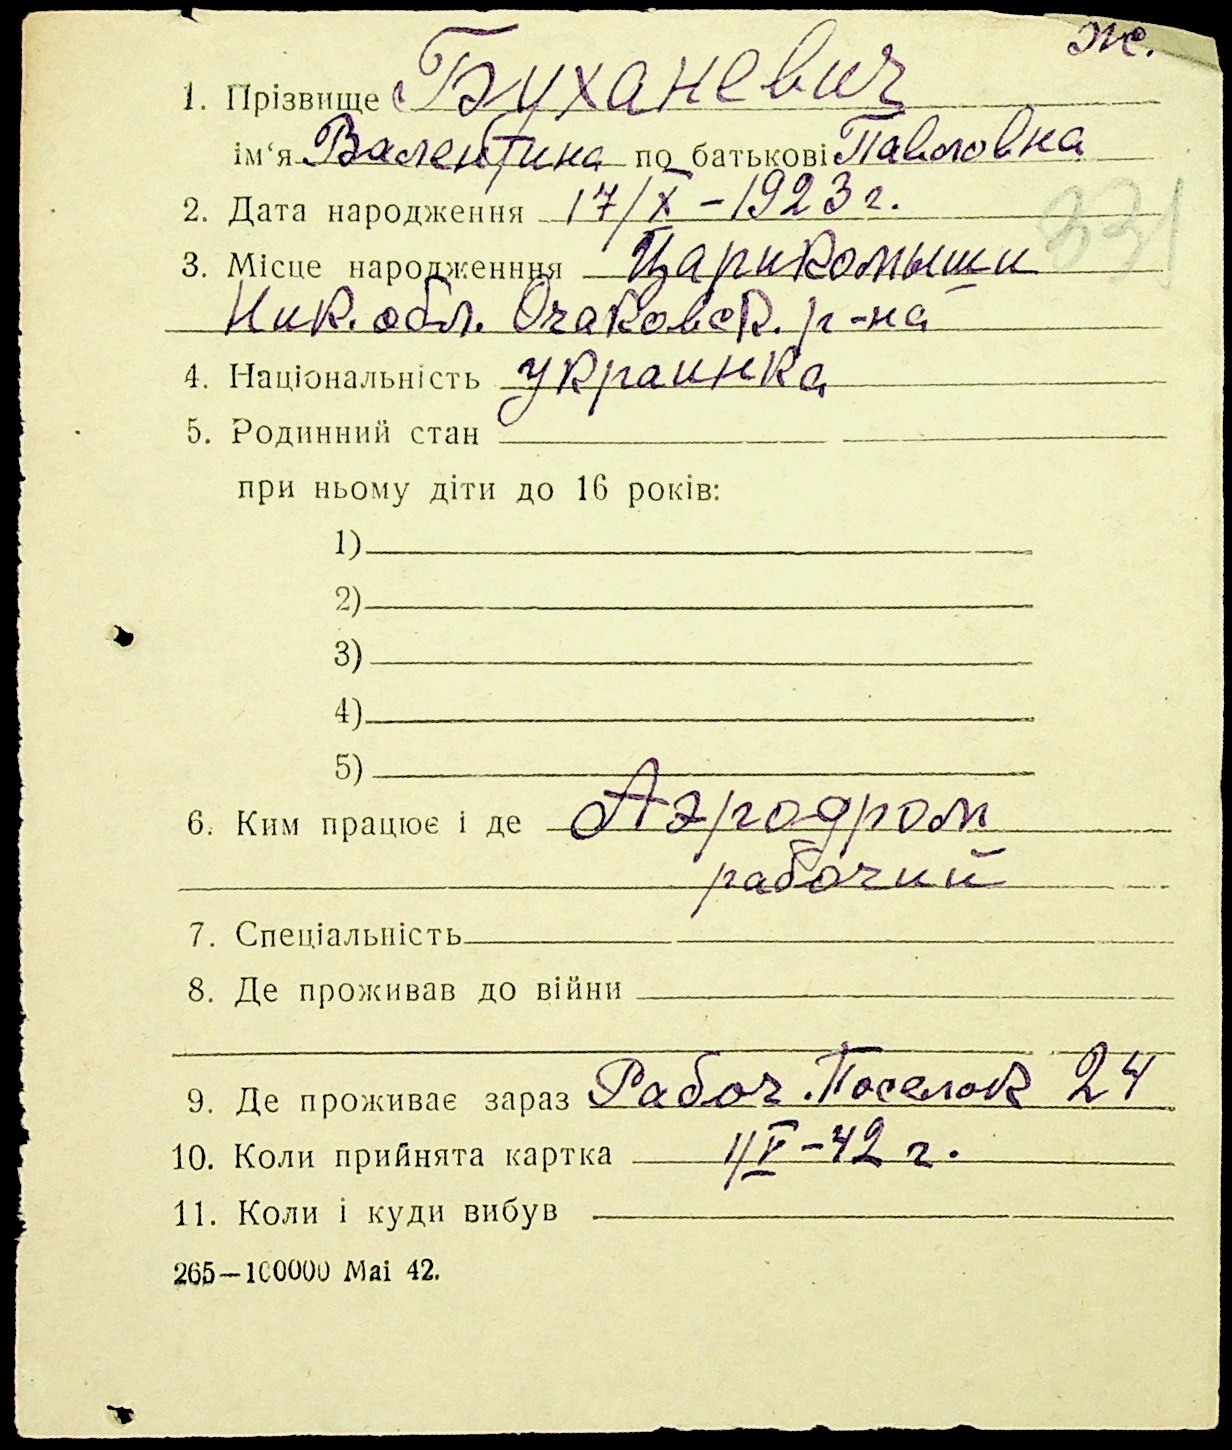 ж.
1. Прізвище Буханевич
ім‘я Валентина по батькові Павловна
2. Дата народження 17/X – 1923 г.
331
3. Місце народженння Царикомыши
Ник. обл. Очаковск. р-на
4. Національність украинка
5. Родинний стан
при ньому діти до 16 років:
1)
2)
3)
4)
5)
6. Ким працює і де Аэродром
рабочий
7. Спеціальність
8. Де проживав до війни
9. Де проживає зараз Рабоч. Поселок 24
10. Коли прийнята картка 1/V – 42 г.
11. Коли і куди вибув
265—100000 Mai 42.